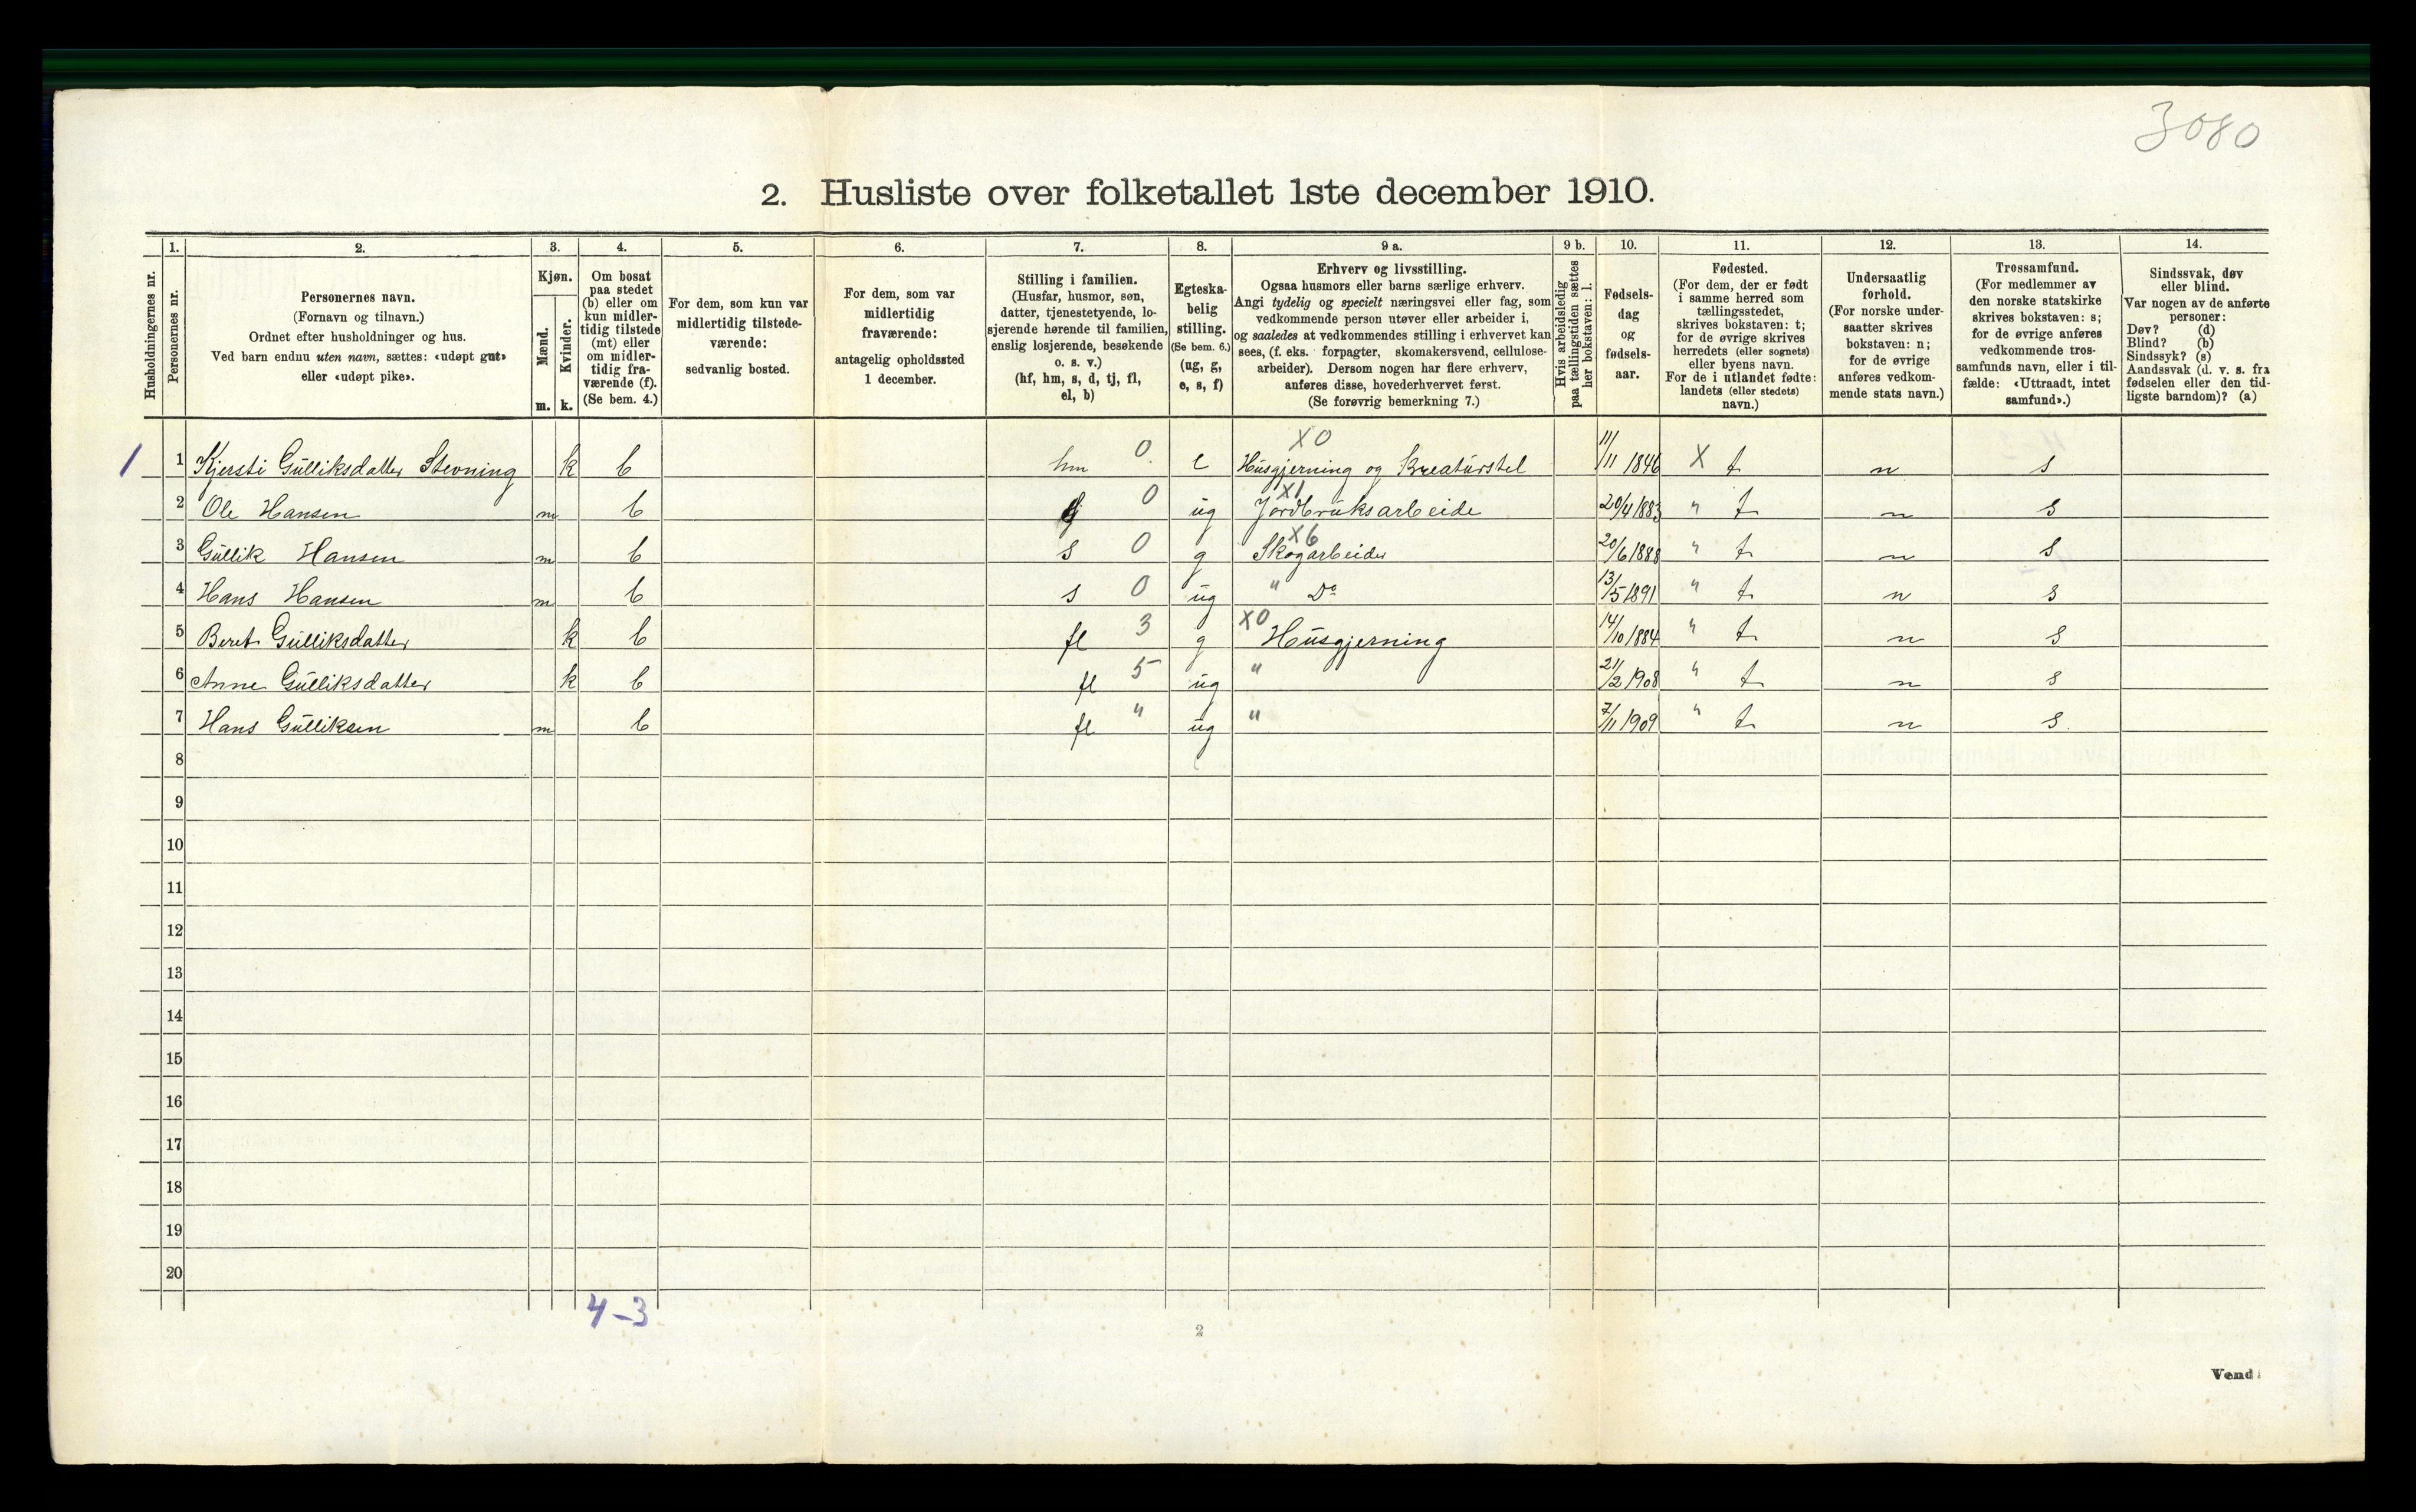 3080
2. Husliste over folketallet 1ste december 1910.
1. 2. 3. 4. 5. 6. 7. 8. 9 a. 9 b. 10. 11. 12. 13. 14.
Husholdningernes nr.
Personernes nr.
Personernes navn.
(Fornavn og tilnavn.)
Ordnet efter husholdninger og hus.
Ved barn endnu uten navn, sættes: «udøpt gut»
eller «udøpt pike».
Kjøn.
Mænd.
Kvinder.
m. k.
Om bosat
paa stedet
(b) eller om
kun midler-
tidig tilstede
(mt) eller
om midler-
tidig fra-
værende (f).
(Se bem. 4.)
For dem, som kun var
midlertidig tilstede-
værende:
sedvanlig bosted.
For dem, som var
midlertidig
fraværende:
antagelig opholdssted
1 december.
Stilling i familien.
(Husfar, husmor, søn,
datter, tjenestetyende, lo-
sjerende hørende til familien,
enslig losjerende, besøkende
o. s. v.)
(hf, hm, s, d, tj, fl,
el, b)
Egteska-
belig
stilling.
(Se bem. 6.)
(ug, g,
e, s, f)
Erhverv og livsstilling.
Ogsaa husmors eller barns særlige erhverv.
Angi tydelig og specielt næringsvei eller fag, som
vedkommende person utøver eller arbeider i,
og saaledes at vedkommendes stilling i erhvervet kan
sees, (f. eks. forpagter, skomakersvend, cellulose-
arbeider). Dersom nogen har flere erhverv,
anføres disse, hovederhvervet først.
(Se forøvrig bemerkning 7.)
Hvis arbeidsledig
paa tællingstiden sættes
her bokstaven: l.
Fødsels-
dag
og
fødsels-
aar.
Fødested.
(For dem, der er født
i samme herred som
tællingsstedet,
skrives bokstaven: t;
for de øvrige skrives
herredets (eller sognets)
eller byens navn.
For de i utlandet fødte:
landets (eller stedets)
navn.)
Undersaatlig
forhold.
(For norske under-
saatter skrives
bokstaven: n;
for de øvrige
anføres vedkom-
mende stats navn.)
Trossamfund.
(For medlemmer av
den norske statskirke
skrives bokstaven: s;
for de øvrige anføres
vedkommende tros-
samfunds navn, eller i til-
fælde: «Uttraadt, intet
samfund».)
Sindssvak, døv
eller blind.
Var nogen av de anførte
personer:
Døv? (d)
Blind? (b)
Sindssyk? (s)
Aandssvak (d. v. s. fra
fødselen eller den tid-
ligste barndom)? (a)
X0
1 1 Kjersti Gulliksdatter Stevning k b hm 0 e Husgjerning og Kreaturstel 11/11 1846 X t n s
X1
2 Ole Hansen m b 0 ug Jordbruksarbeide 20/4 1883 " t n s
X6
3 Gullik Hansen m b s 0 g Skogarbeider 20/6 1888 " t n s
4 Hans Hansen m b s 0 ug " Do 13/5 1891 " t n s
X0
5 Beret Gulliksdatter k b fl 3 g Husgjerning 14/10 1884 " t n s
6 Anne Gulliksdatter k b fl 5 ug " 21/2 1908 " t n s
7 Hans Gulliksen m b fl " ug " 7/11 1909 " t n s
8
9
10
11
12
13
14
15
16
17
18
19
20
4-3
2
Vend